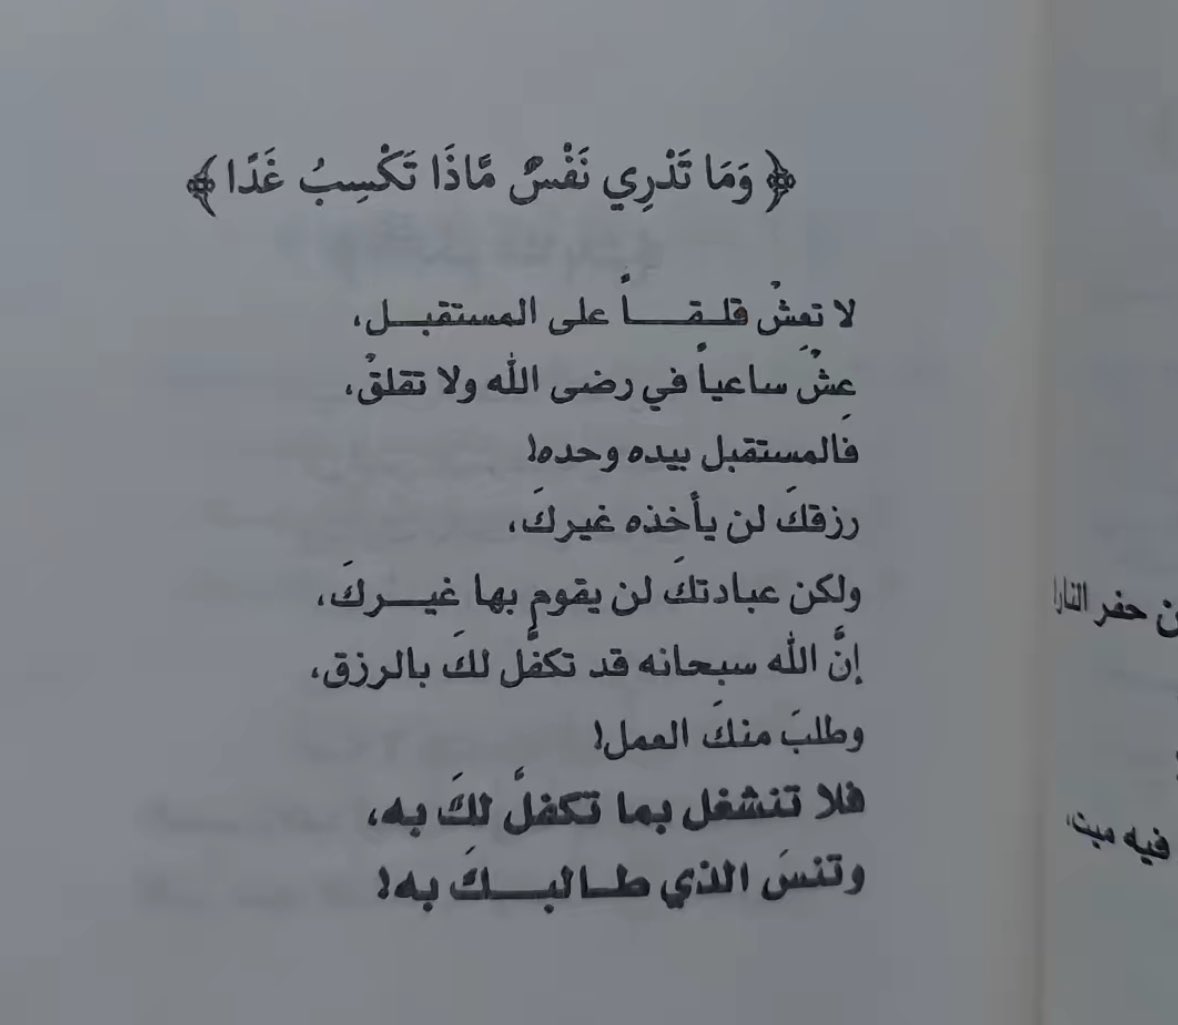 ﴿ وَمَا تَدْرِي نَفْسٌ مَّاذَا تَكْسِبُ غَدًا ﴾
لا تعِشْ قلقاً على المستقبل،
عِشْ ساعياً في رضى الله ولا تقلقْ،
فَالمستقبل بيده وحده!
رزقكَ لن يأخذه غيركَ،
ولكن عبادتكَ لن يقوم بها غيركَ،
إنَّ الله سبحانه قد تكفَّل لكَ بالرزق،
وطلبَ منكَ العمل!
فلا تنشغل بما تكفلَّ لكَ به،
وتنسَ الذي طالبكَ به!
حفر النار!
فيه ميت،